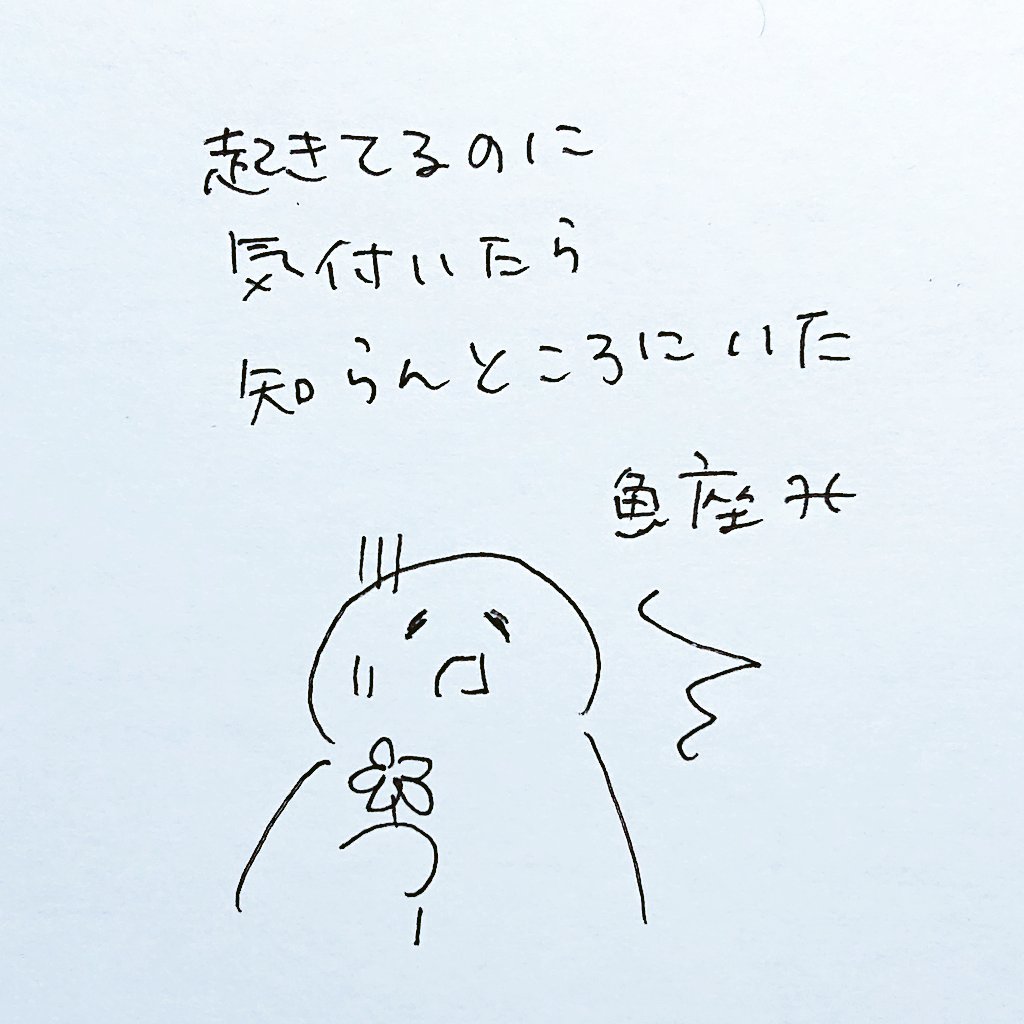 起きてるのに
気付いたら
知らんところにいた
魚座♓